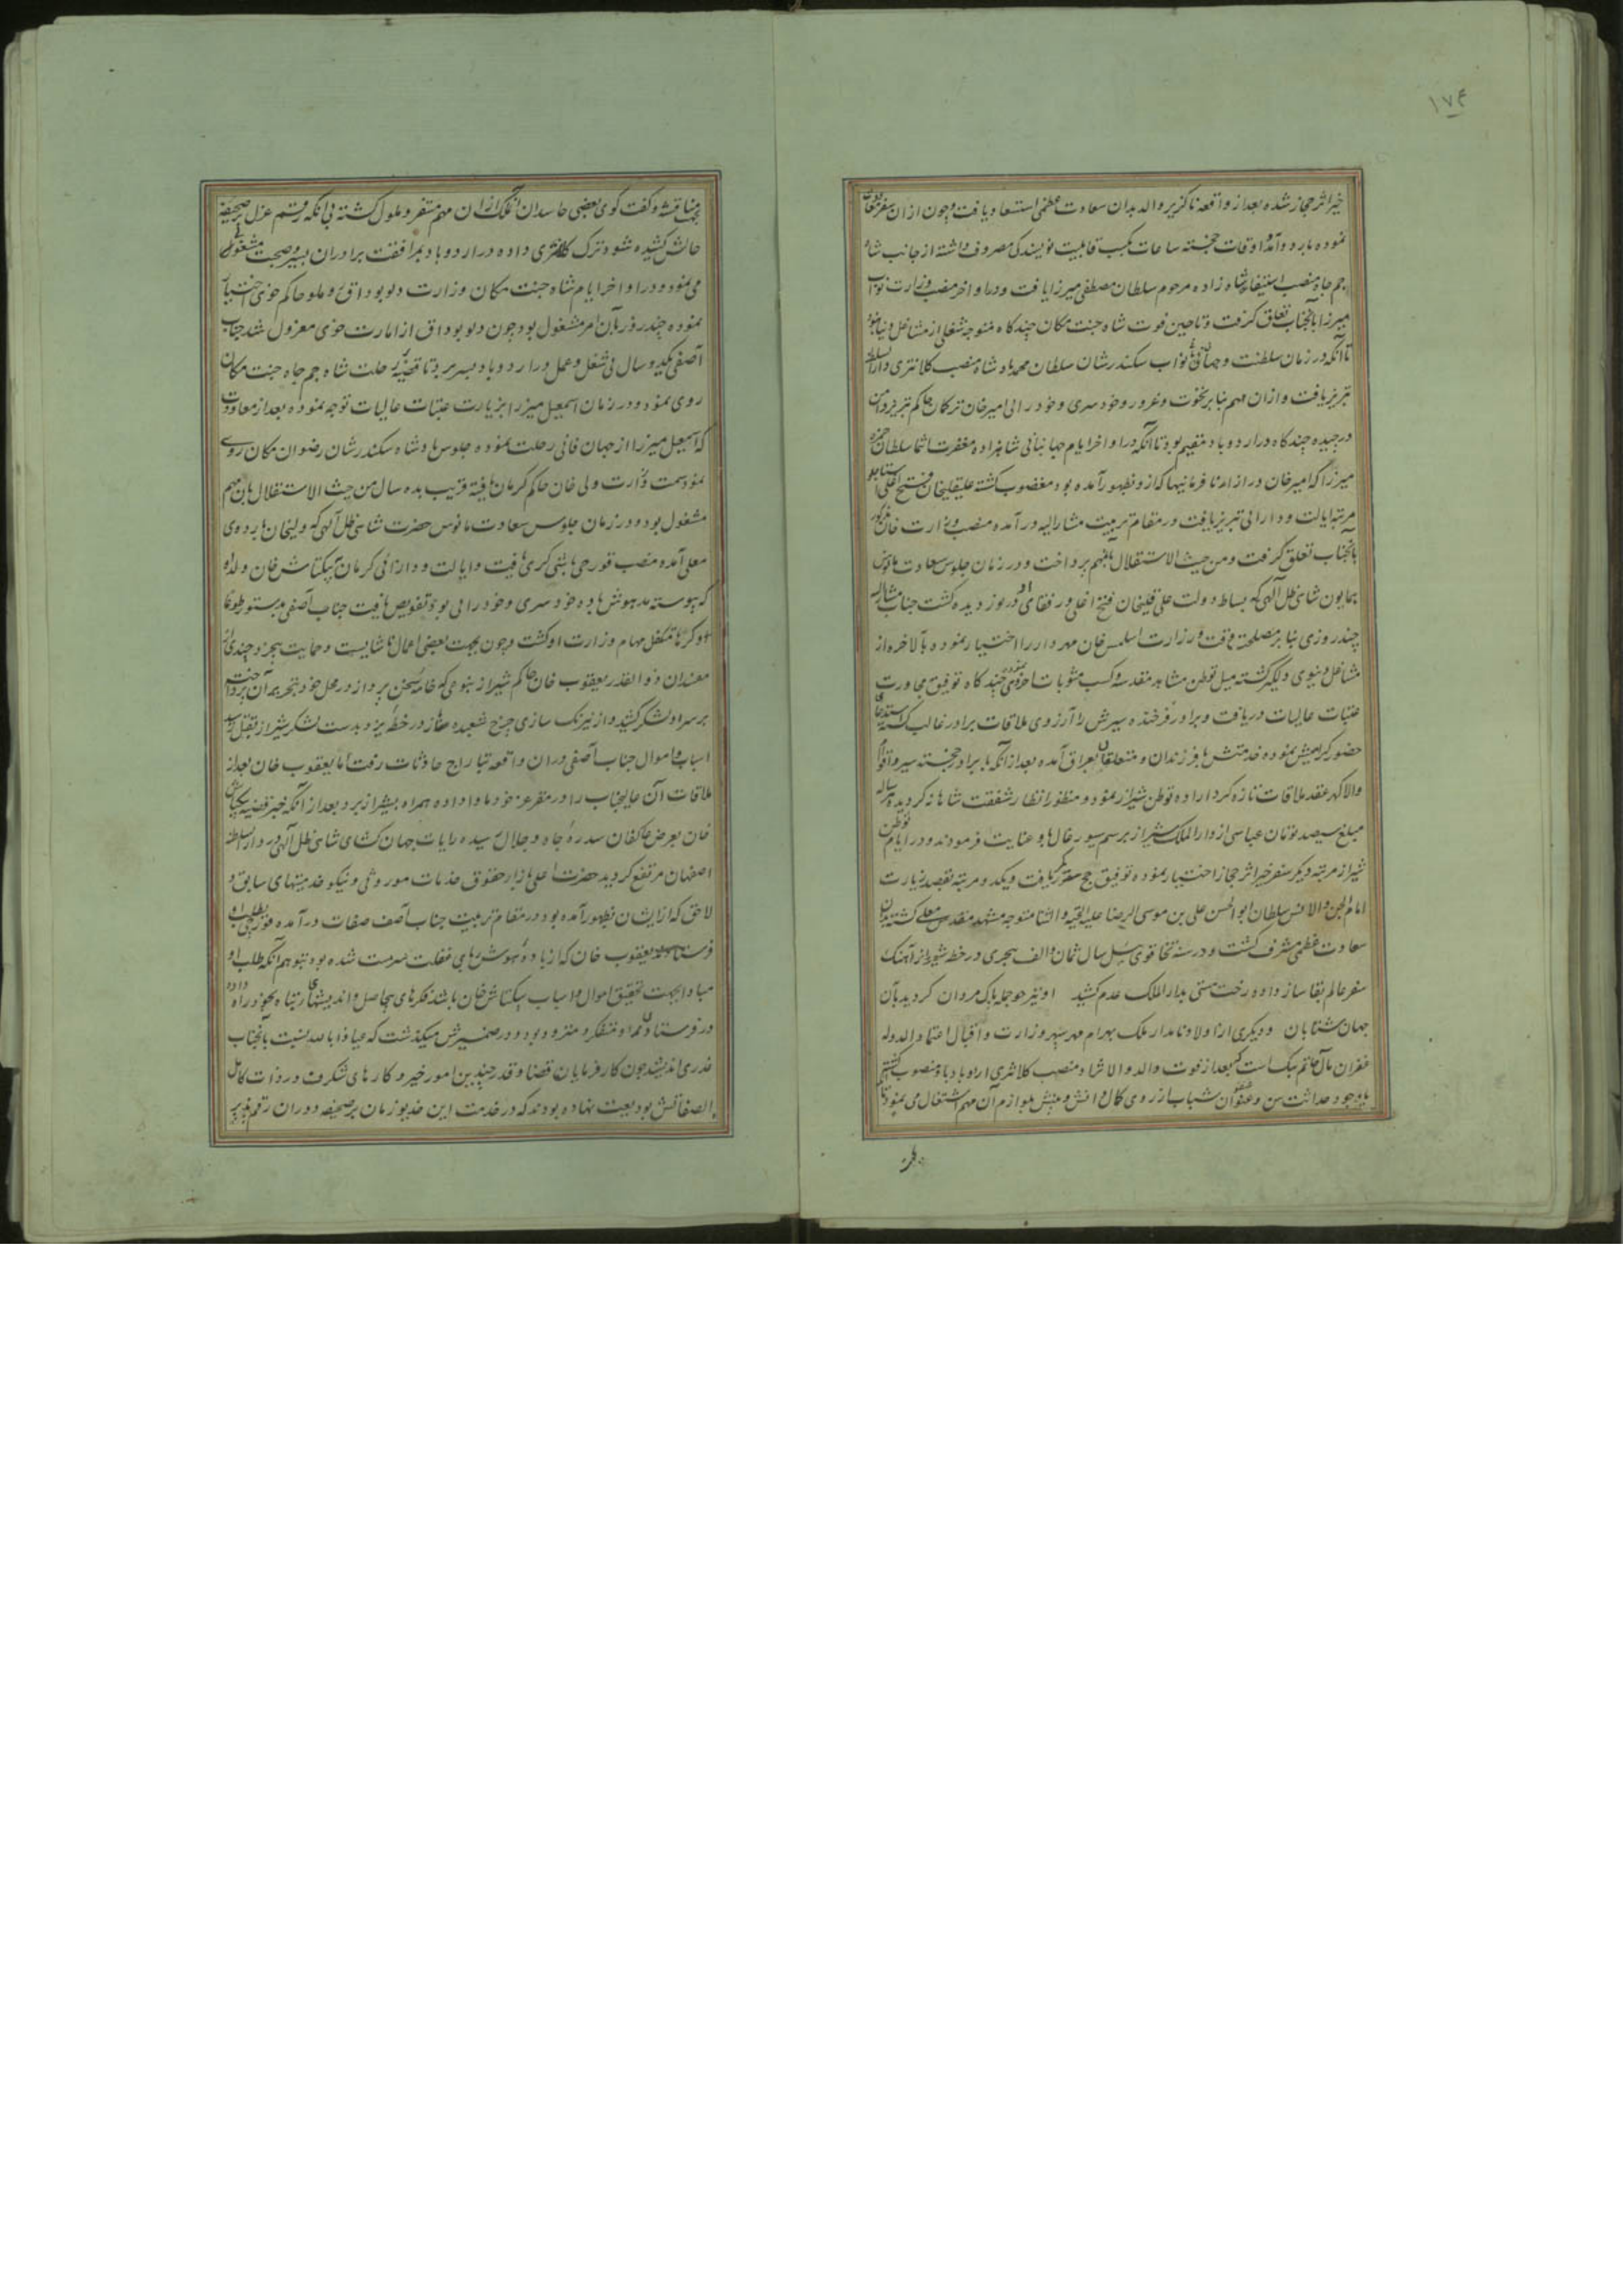 ١٧۴
خیر اثر حجاز شده بعد از واقعه ناگزیر والد بدان سعادت عظمی استسعاد یافت و چون از ان سفر معاودت
نموده باردوآمد و اوقات خجسته ساعات بکسب قابلیت نویسندگی مصروف داشته از جانب شاه
جم جاه منصب استیفاء شاه زاده مرحوم سلطان مصطفی میرزا یافت و در اواخر منصب وزارت نواب
میرزا بآنجناب تعلق گرفت و تا حین فوت شاه جنت مکان چند گاه متوجه شغلی از مشاغل دنیا نبود
تا آنکه در زمان سلطنت و جهانبانی نواب سکندر شان سلطان محمد پادشاه منصب کلانتری دار السلطنه
تبریز یافت و ازان مهم بنا بر نخوت و غرور و خود سری و خود رائی امیر خان ترکان حاکم تبریز دامن
درچیده چند گاه در اردوباد مقیم بود تا آنکه در اواخر ایام جهانبانی شاهزاده مغفرت انتما سلطان حمزه
میرزا که امیر خان در ازاء نا فرمانیها که ازو بظهور آمده بود مغضوب گشته علیقلیخان فتح اغلی استاجلو
مرتبه ایالت و دارائی تبریز یافت و در مقام تربیت مشار الیه در آمده منصب وزارت خان مذکور
بآنجناب تعلق گرفت و من حیث الاستقلال بآنمهم پرداخت و در زمان جلوس سعادت مانوس
همایون شاهی ظل آلهی که بساط دولت علی قلیخان فتح اغلی و رفقای او در نوردیده گشت جناب مشار الیه
چند روزی بنا بر مصلحت وقت وزارت اسلمس خان مهردار را اختیار نموده بالاخره از
مشاغل دنیوی دلگیر گشته میل توطن مشاهد مقدسه و کسب مثوبات اخروی نموده چند گاه توفیق مجاورت
عتبات عالیات دریافت و برادر فرخنده سیرش را آرزوی ملاقات برادر غالب گشته استدعای
حضور گرامیش نموده خدمتش با فرزندان و متعلقان بعراق آمده بعد از آنکه با برادر خجسته سیر و اقوام
والا گهر عقد ملاقات تازه کرد اراده توطن شیراز نمود و منظور انظار شفقت شاهانه گردیده هر ساله
مبلغ سیصد تومان عباسی از دار الملک شیراز برسم سیورغال باو عنایت فرمودند و در ایام توطن
شیراز مرتبه دیگر سفر خیر اثر حجاز اختیار نموده توفیق حج مکرر یافت و یکدو مرتبه بقصد زیارت
امام الجن و الانس سلطان ابو الحسن علی بن موسی الرضا علیه التحیه و الثنا متوجه مشهد مقدس معلی گشته بدان
سعادت عظمی مشرف گشت و در سنه تخاقوی ئیل سال ثمان و الف هجری در خطه شیراز آهنگ
سفر عالم بقا ساز داده رخت هستی بدار الملک عدم کشید او نیز خواجه پاک مردان گردید بآن
جهان شتابان و دیگری از اولاد نامدار ملک بهرام مهر سپهر وزارت و اقبال اعتماد الدوله
غفران مآل حاتم بیک است که بعد از فوت والد والا نژاد منصب کلانتری اردوباد باو منصوب گشته
با وجود حداثت سن و عنفوان شباب از روی کمال دانش و بینش بلوازم آن مهم اشتغال می نمود تا
بمناقشه و گفت گوی بعضی حاسدان آنملک ازان مهم متنفر و ملول گشته بی آنکه رقم عزل بر صحیفه
حالش کشیده شود ترک کلانتری داده در اردوباد بمرافقت برادران بسیر و صحبت مشغولی
می نمود و در اواخر ایام شاه جنت مکان وزارت دلو بوداق روملو حاکم خوی اختیار
نموده چند روز بآن امر مشغول بود چون دلو بوداق از امارت خوی معزول شد جناب
آصفی یکدو سال بی شغل و عمل در اردوباد بسر برد تا قضیه رحلت شاه جم جاه جنت مکان
روی نمود و در زمان اسمعیل میرزا بزیارت عتبات عالیات توجه نموده بعد از معاودت
که اسمعیل میرزا از جهان فانی رحلت نموده جلوس پادشاه سکندر شان رضوان مکان روی
نمود سمت وزارت ولی خان حاکم کرمان یافته قریب بده سال من حیث الاستقلال بآن مهم
مشغول بود و در زمان جلوس سعادت مانوس حضرت شاهی ظل آلهی که ولیخان باردوی
معلی آمده منصب قورچی باشی گری یافت و ایالت و دارائی کرمان به بیکتاش خان ولد او
که پیوسته مدهوش باده خود سری و خود رائی بود تفویض یافت جناب آصفی بدستور طوعا
او کرها متکفل مهام وزارت او گشت و چون بجهت بعضی اعمال ناشایست و حمایت چند از
مفسدان ذو القدر یعقوب خان حاکم شیراز بنوعی که خامه سخن پرداز در محل خود بتحریر آن پرداخت
بر سر او لشکر کشید و از نیرنگ سازی چرخ شعبده باز در خطه یزد بدست لشکر شیراز بقتل رسید
اسباب و اموال جناب آصفی در ان واقعه بتاراج حادثات رفت اما یعقوب خان بعد از
ملاقات آن عالیجناب را در مقر عز خود ماوا داده همراه بشیراز برد بعد از آنکه خبر قضیه بیکتاش
خان بعرض عاکفان سدره جاه و جلال رسیده رایات جهان گشای شاهی ظل آلهی در دار السلطنه
اصفهان مرتفع گردید حضرت اعلی بازاء حقوق خدمات موروثی و نیکو خدمتیهای سابق و
لاحق که از ایشان بظهور آمده بود در مقام تربیت جناب آصف صفات در آمده قورچی بطلب او
فرستادند یعقوب خان که از باده هوش ربای غفلت سرمست شده بود بتوهم آنکه طلب او
مبادا بجهت تحقیق اموال و اسباب بیکتاش خان باشد فکرهای بیحاصل و اندیشهای تباه بخود راه داده
در فرستادن او متفکر و متردد بود و در ضمیرش میگذشت که عیاذا بالله نسبت بآنجناب
غدری اندیشد چون کارفرمایان قضا و قدر چندین امور خیر و کارهای شگرف در ذات کامل
الصفاتش بودیعت نهاده بودند که در خدمت این خدیو زمان بر صحیفه دوران رقم پذیر